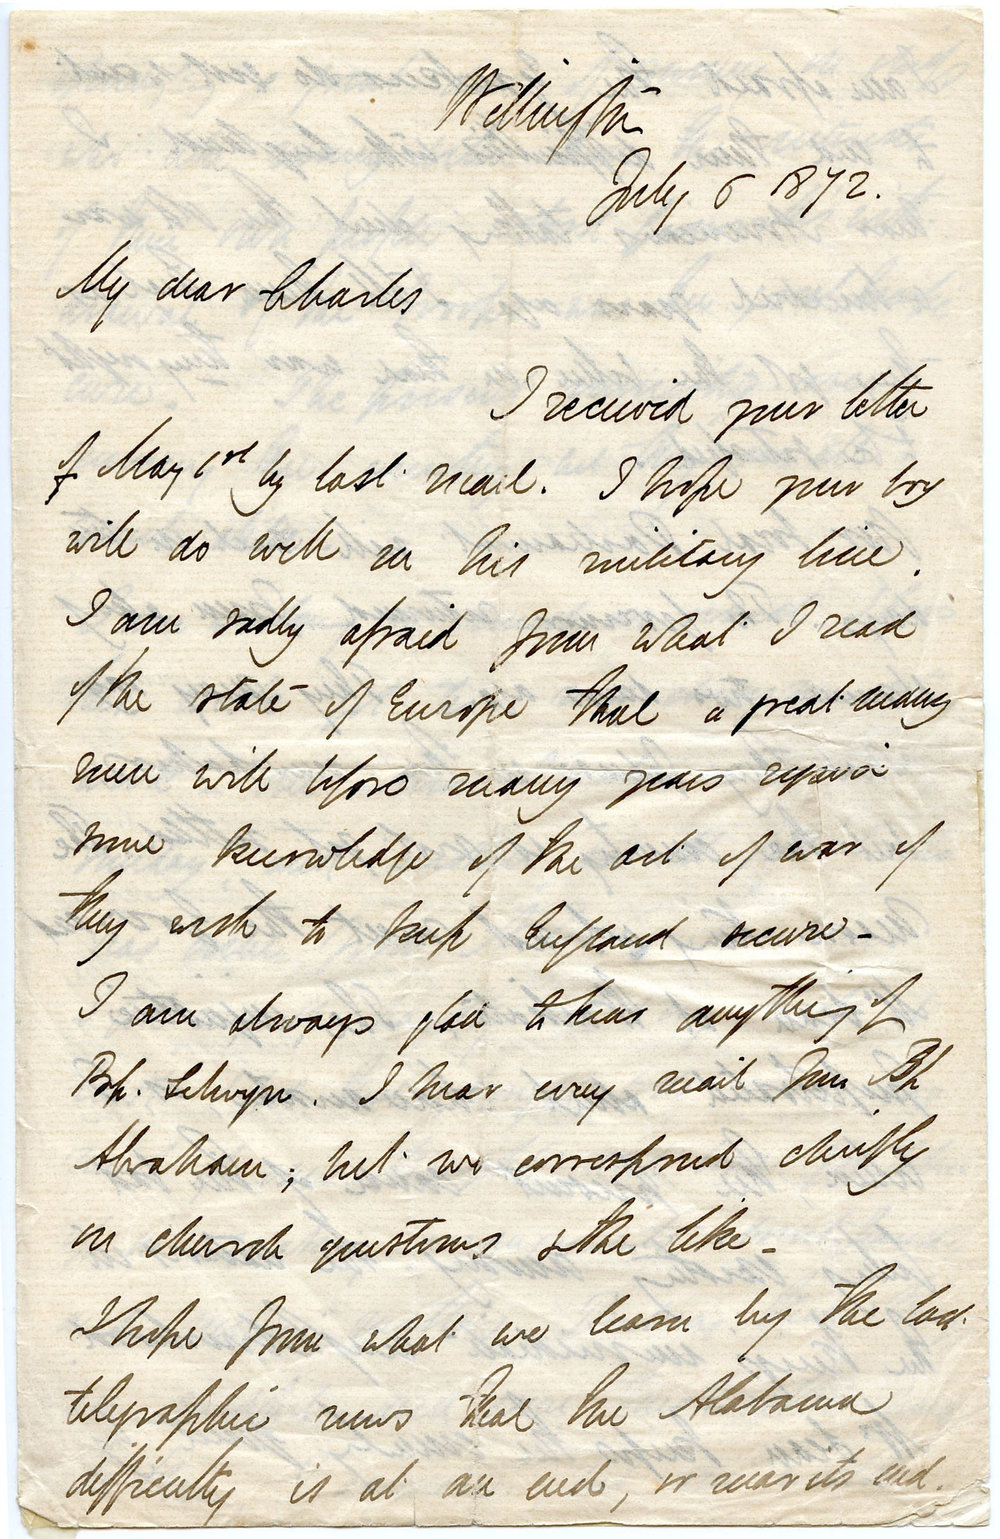 Wellington
July 6 1872.
My dear Charles
I received your letter
of May 1st by last mail. I hope your boy
will do well in his military line.
I am sadly afraid from what I read
of the state of Europe that a great many
men will before many years require
some knowledge of the art of war if
they wish to keep England secure -
I am always glad to hear anything of
Bp. Selwyn. I hear every mail from Bp
Abraham; but we correspond chiefly
on church questions & the like -
I hope from what we learn by the last
telegraphic news that the Alabama
difficulty is at an end, or near its end.